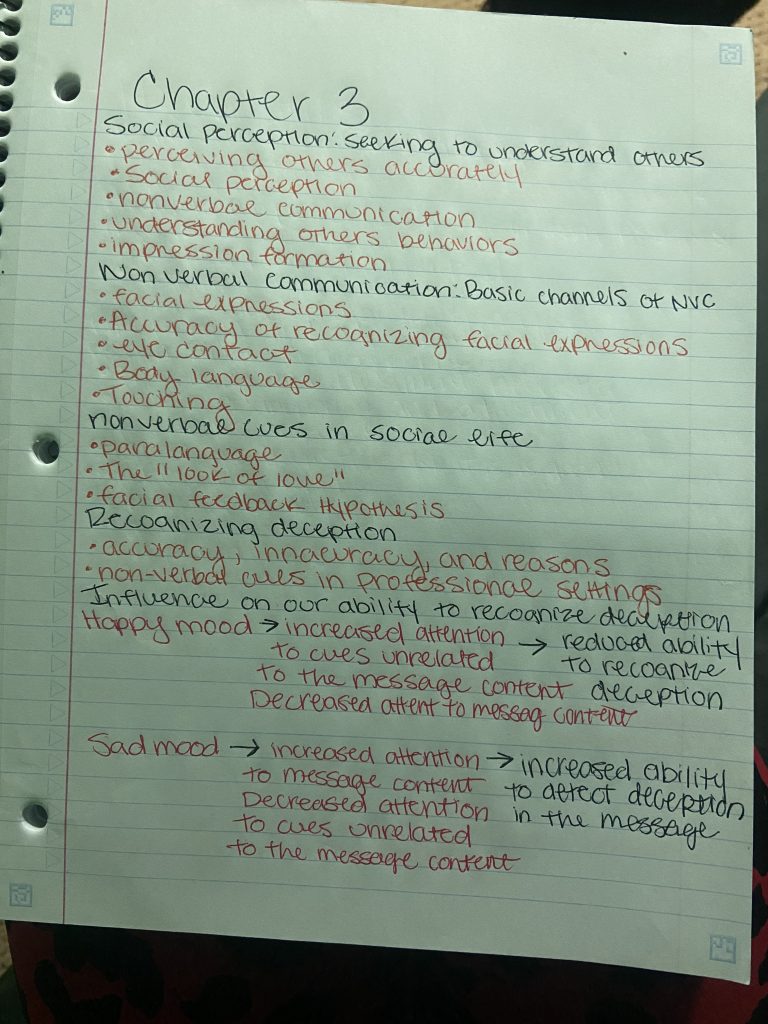 Chapter 3
Social perception: seeking to understand others
• perceiving others accurately
• Social perception
• nonverbal communication
• understanding others behaviors
• impression formation
Non verbal communication: Basic channels of NVC
• facial expressions
• Accuracy of recognizing facial expressions
• eye contact
• Body language
• Touching
nonverbal cues in social life
• paralanguage
• The "look of love"
• facial feedback Hypothesis
Recognizing deception
• accuracy, innacuracy, and reasons
• non-verbal cues in professional settings
Influence on our ability to recognize deception
Happy mood → increased attention → reduced ability
to cues unrelated to recognize
to the message content deception
Decreased attent to messag content
Sad mood → increased attention → increased ability
to message content to detect deception
Decreased attention in the message
to cues unrelated
to the message content